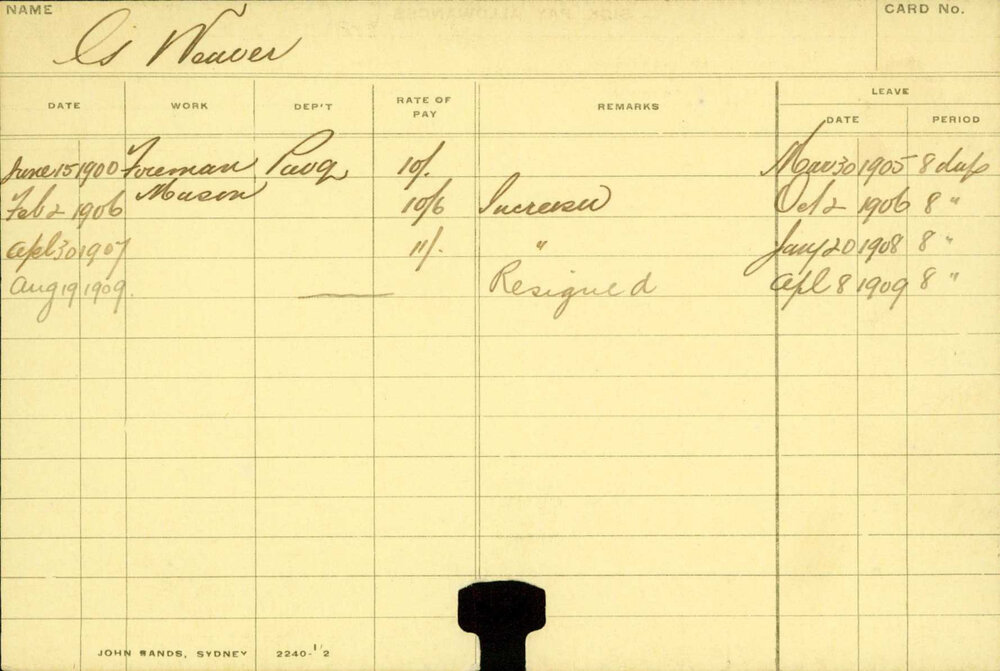 NAME
CARD No.
Weaver
DATE WORK DEP'T RATE OF PAY REMARKS LEAVE
DATE PERIOD
June 15 1900 Foreman Pavg 10/. Mar 30 1905 8 days
Feb 2 1906 Mason 10/6 Increase Oct 2 1906 8 "
Apl 30 1907 11/. " Jany 20 1908 8 "
Aug 19 1909. Resigned Apl 8 1909 8 "
JOHN SANDS, SYDNEY 2240-1/2